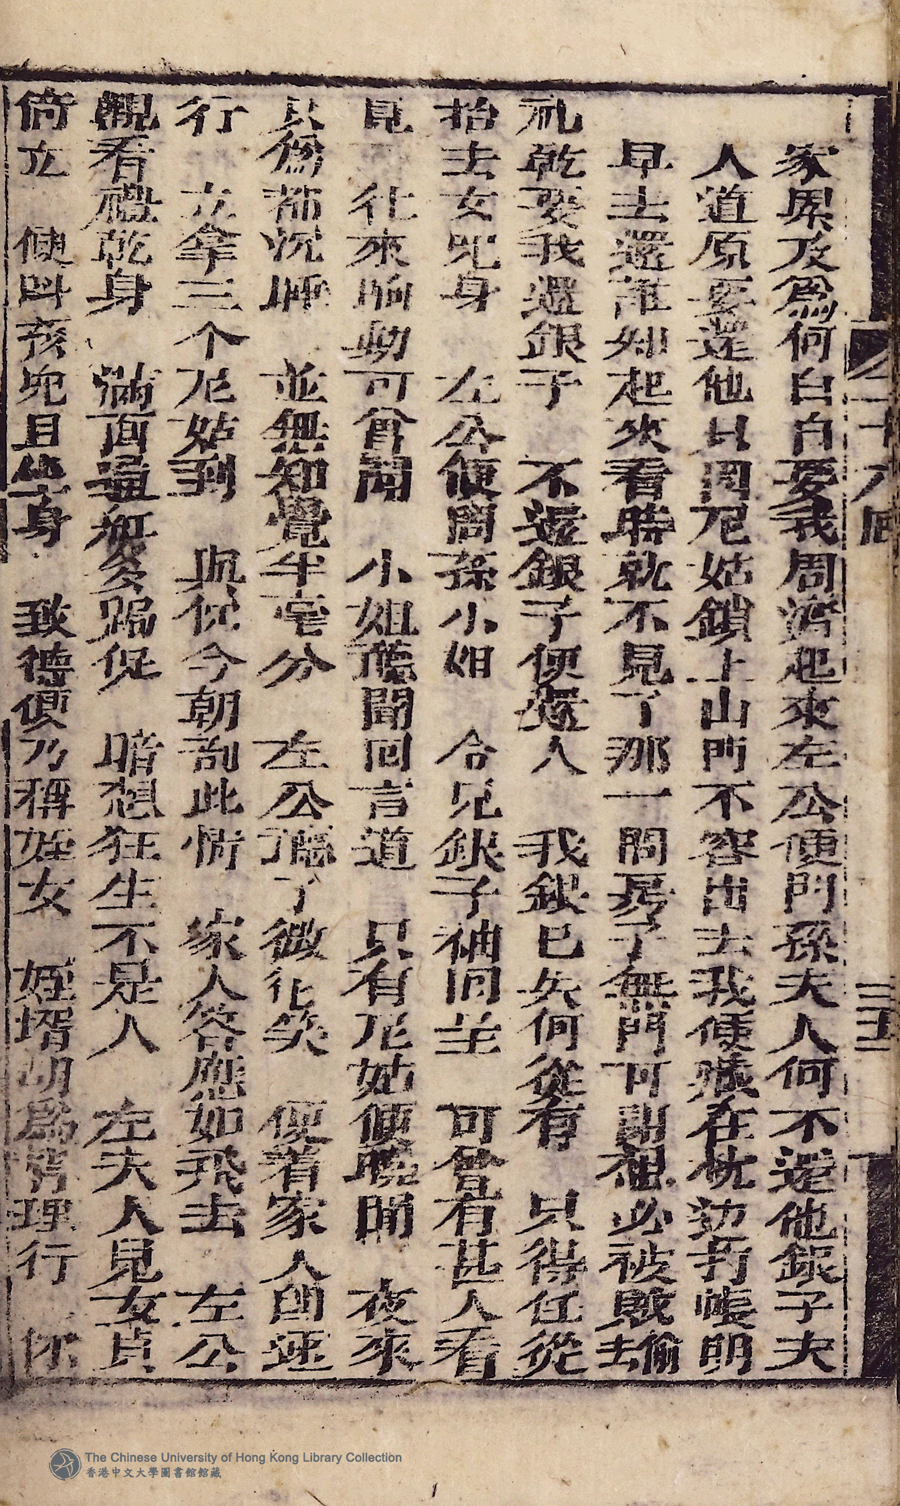 家畧及爲何白白要我周濟起來左公便門孫夫人何不還他銀子夫
人道原要還他只因尼姑鎖上山門不容出去我便藏在枕边打帳明
早去還誰知起來看時就不見了那一間房子無門可閉想必被賊偷去
礼乾要我還銀子　不還銀子便還人　我銀已失何從有　只得任從
抬去女兒身　左公便問孫小姐　令兄銀子袖回主　可曾有甚人看
見　往來响動可曾聞　小姐聽聞回言道　只有尼姑便曉開　夜來
只爲都沉睡　並無知覺半毫分　左公聽了微化笑　便着家人即速
行　立拿三个尼姑到　與你今朝剖此情　家人答應如飛去　左公
觀看禮乾身　滿面通紅多跼促　暗想狂生不是人　左夫人見女貞
倚立　便叫孩兒且坐身　致德便乃稱姪女　姪壻胡爲
理行　你
二十八回
三十五
The Chinese University of Hong Kong Library Collection
香港中文大學圖書館館藏